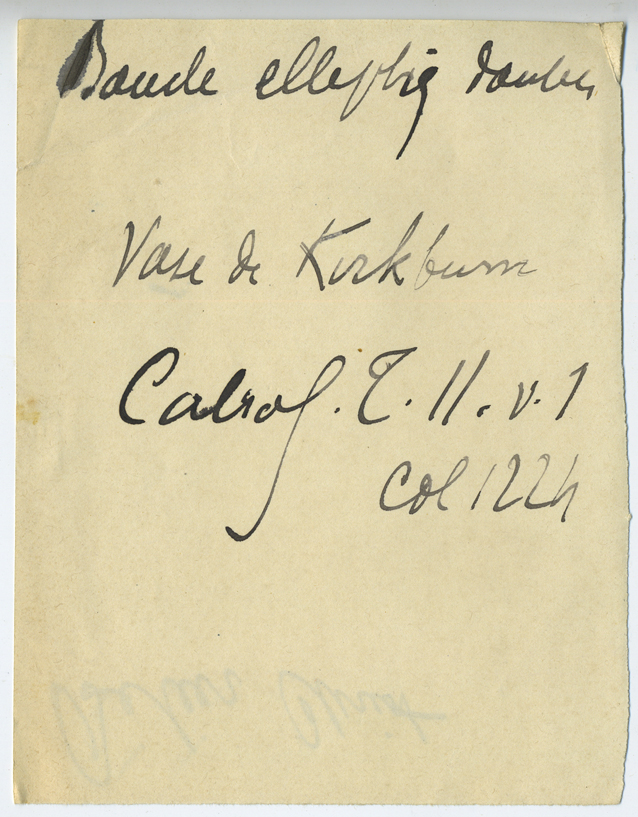 Boucle elleptiq
Vase de Kirkburn
Cabrol. T. II. v. 1
Col 1224